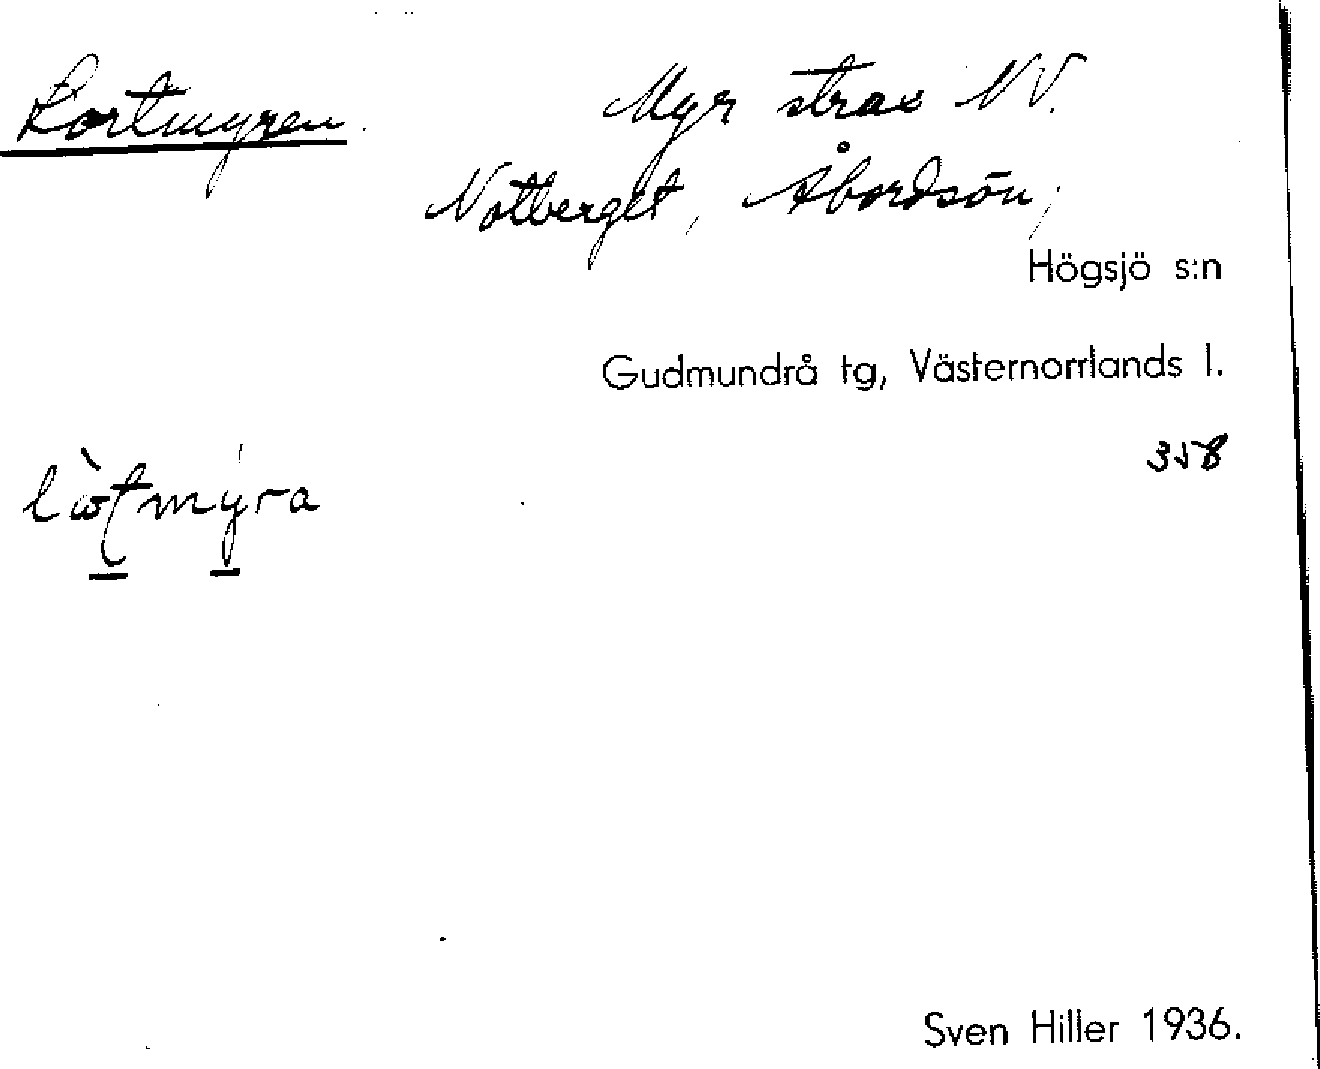 Lortmyren. Myr strax NV.
Notberget, Åbordsön,
Högsjö s:n
Gudmundrå tg, Västernorrlands l.
358
Sven Hiller 1936.